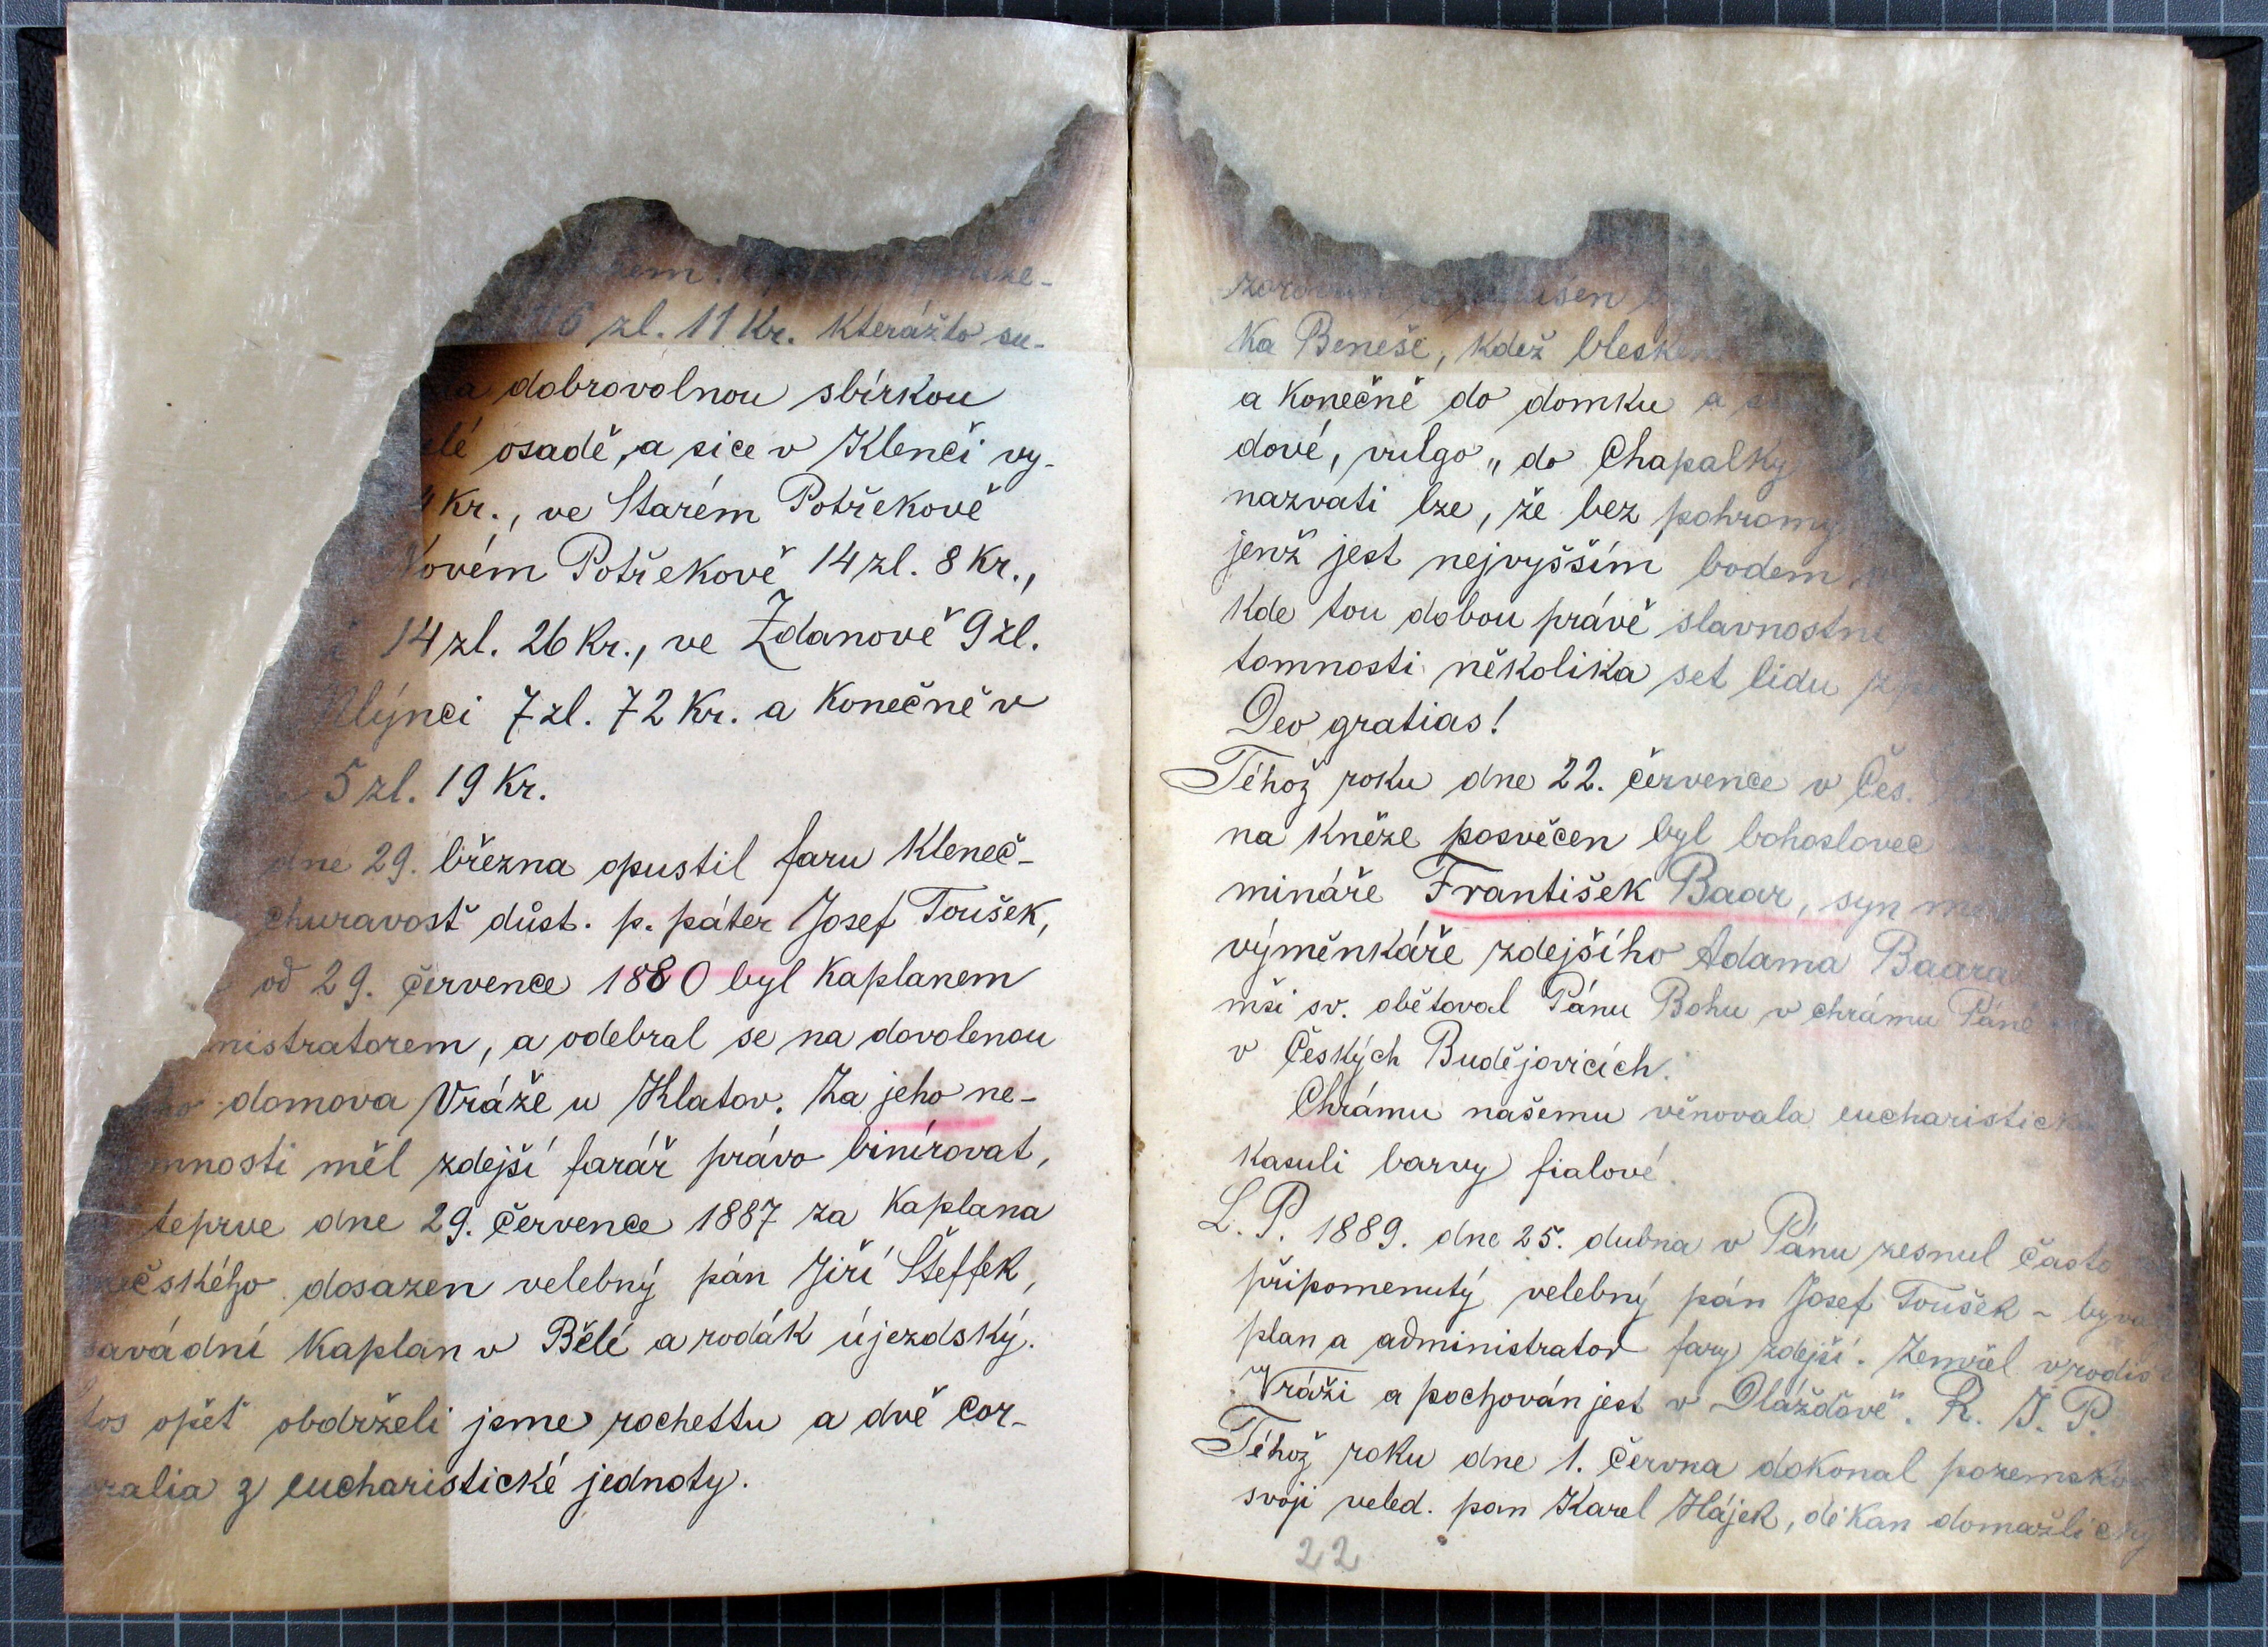 zl. 11 Kr. Kterážto su-
dobrovolnou sbírkou
osadě, a sice v Klenčí vy-
Kr., ve Starém Potřekově
Novém Potřekově 14 zl. 8 Kr.,
14 zl. 26 Kr., ve Ždanově 9 zl.
Mlýnci 7 zl. 72 Kr. a Konečně v
5 zl. 19 Kr.
dne 29. března opustil faru Kleneč-
churavosť důst. p. páter Josef Toušek,
od 29. července 1880 byl Kaplanem
nistratorem, a odebral se na dovolenou
domova Vráže u Klatov. Za jeho ne-
mnosti měl zdejší farář právo binírovat,
teprve dne 29. července 1887 za Kaplana
českého dosazen velebný pán Jiří Šteffek,
savádní Kaplan v Bělé a rodák újezdský.
tos opěť obdrželi jsme rochettu a dvě cor-
ralia z eucharistické jednoty.
Ka Beneše, Kdež bleskem
a Konečně do domku a
dové, vulgo „do Chapalky
nazvati lze, že bez pohromy
jenž jest nejvyšším bodem
Kde tou dobou právě slavnostne
tomnosti několika set lidu
Deo gratias!
Téhož roku dne 22. července v Čes.
na Kněze posvěcen byl bohoslovec
mináře František Baar, syn
výměnkáře zdejšího Adama Baara
mši sv. obětoval Pánu Bohu v chrámu Páně
v Českých Budějovicích.
Chrámu našemu věnovala eucharistick
Kasuli barvy fialové.
L. P. 1889. dne 25. dubna v Pánu zesnul často
připomenutý velebný pán Josef Toušek - býva
plan a administrator fary zdejší. Zemřel v rodiš
Vráži a pochován jest v Dlážďově. R. I. P.
Téhož roku dne 1. června dokonal pozemsko
svoji veled. pan Karel Hájek, děkan domažlický
22